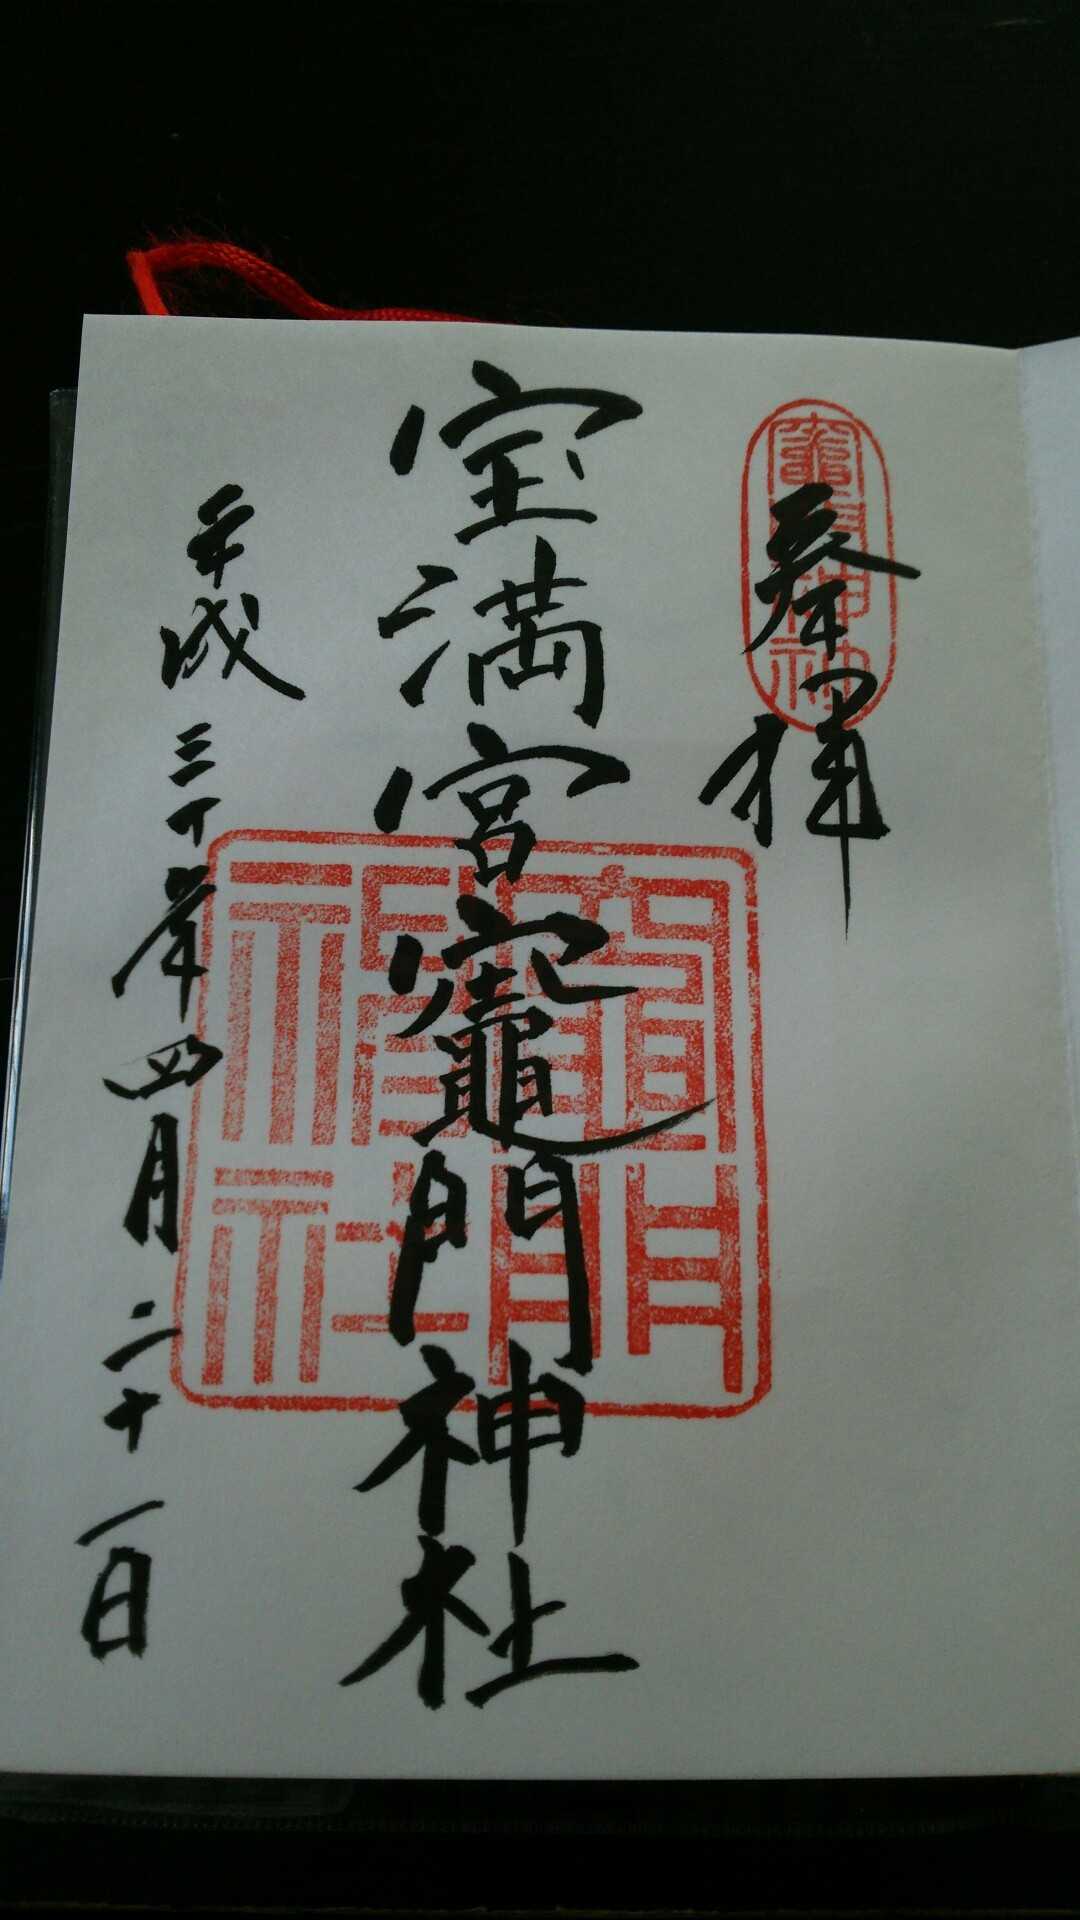 奉拝
竈門神社
宝満宮竈門神社
竈門神社
平成三十年四月二十一日